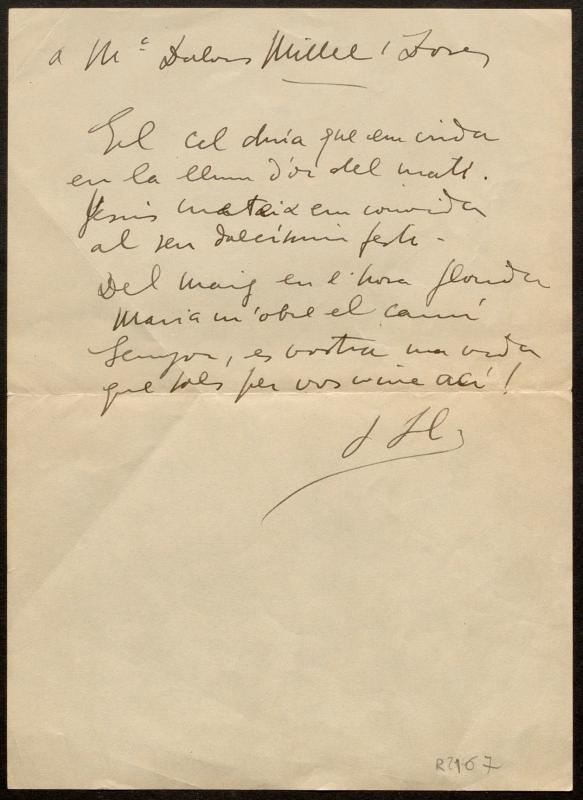 a Mª Dolors Millet i Dorsy
El cel diria que em crida
en la llum d'or del matí.
Jesús mateix em convida
al seu dolcíssim festí.
Del maig en l'hora florida
Maria m'obre el camí
Senyor, es vostra ma vida
que sols per vos viure ací!
R 2167